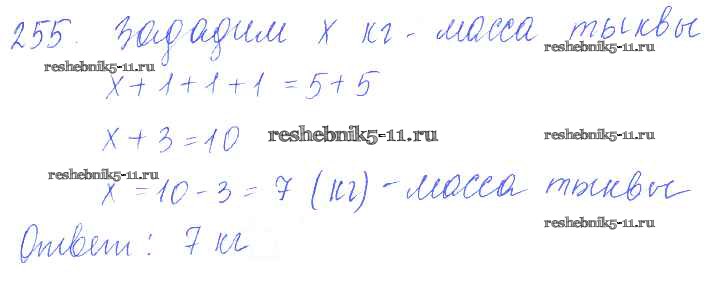 255. Зададим х кг - масса тыквы
reshebnik5-11.ru
reshebnik5-11.ru
х + 1 + 1 + 1 = 5 + 5
х + 3 = 10
reshebnik5-11.ru
reshebnik5-11.ru
reshebnik5-11.ru
х = 10 - 3 = 7 (кг) - масса тыквы
reshebnik5-11.ru
Ответ: 7 кг